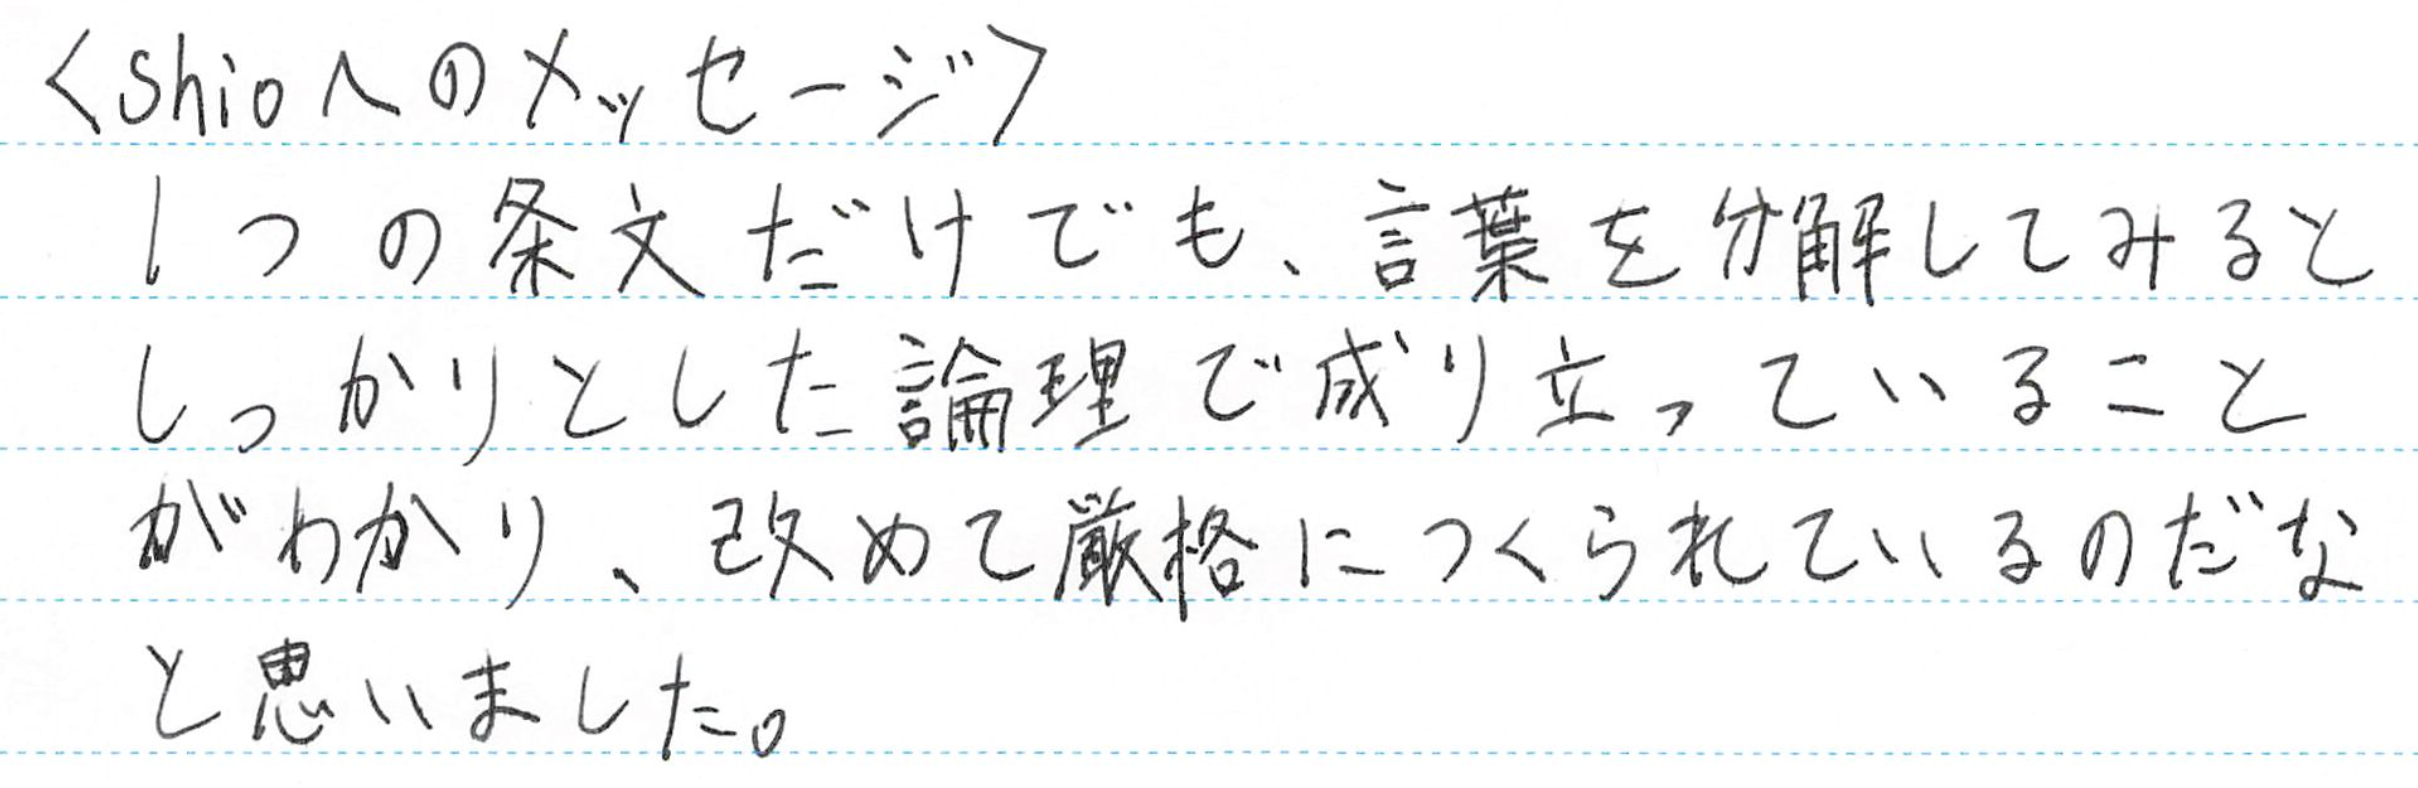 <shioへのメッセージ>
1つの条文だけでも、言葉を分解してみると
しっかりとした論理で成り立っていること
がわかり、改めて厳格につくられているのだな
と思いました。